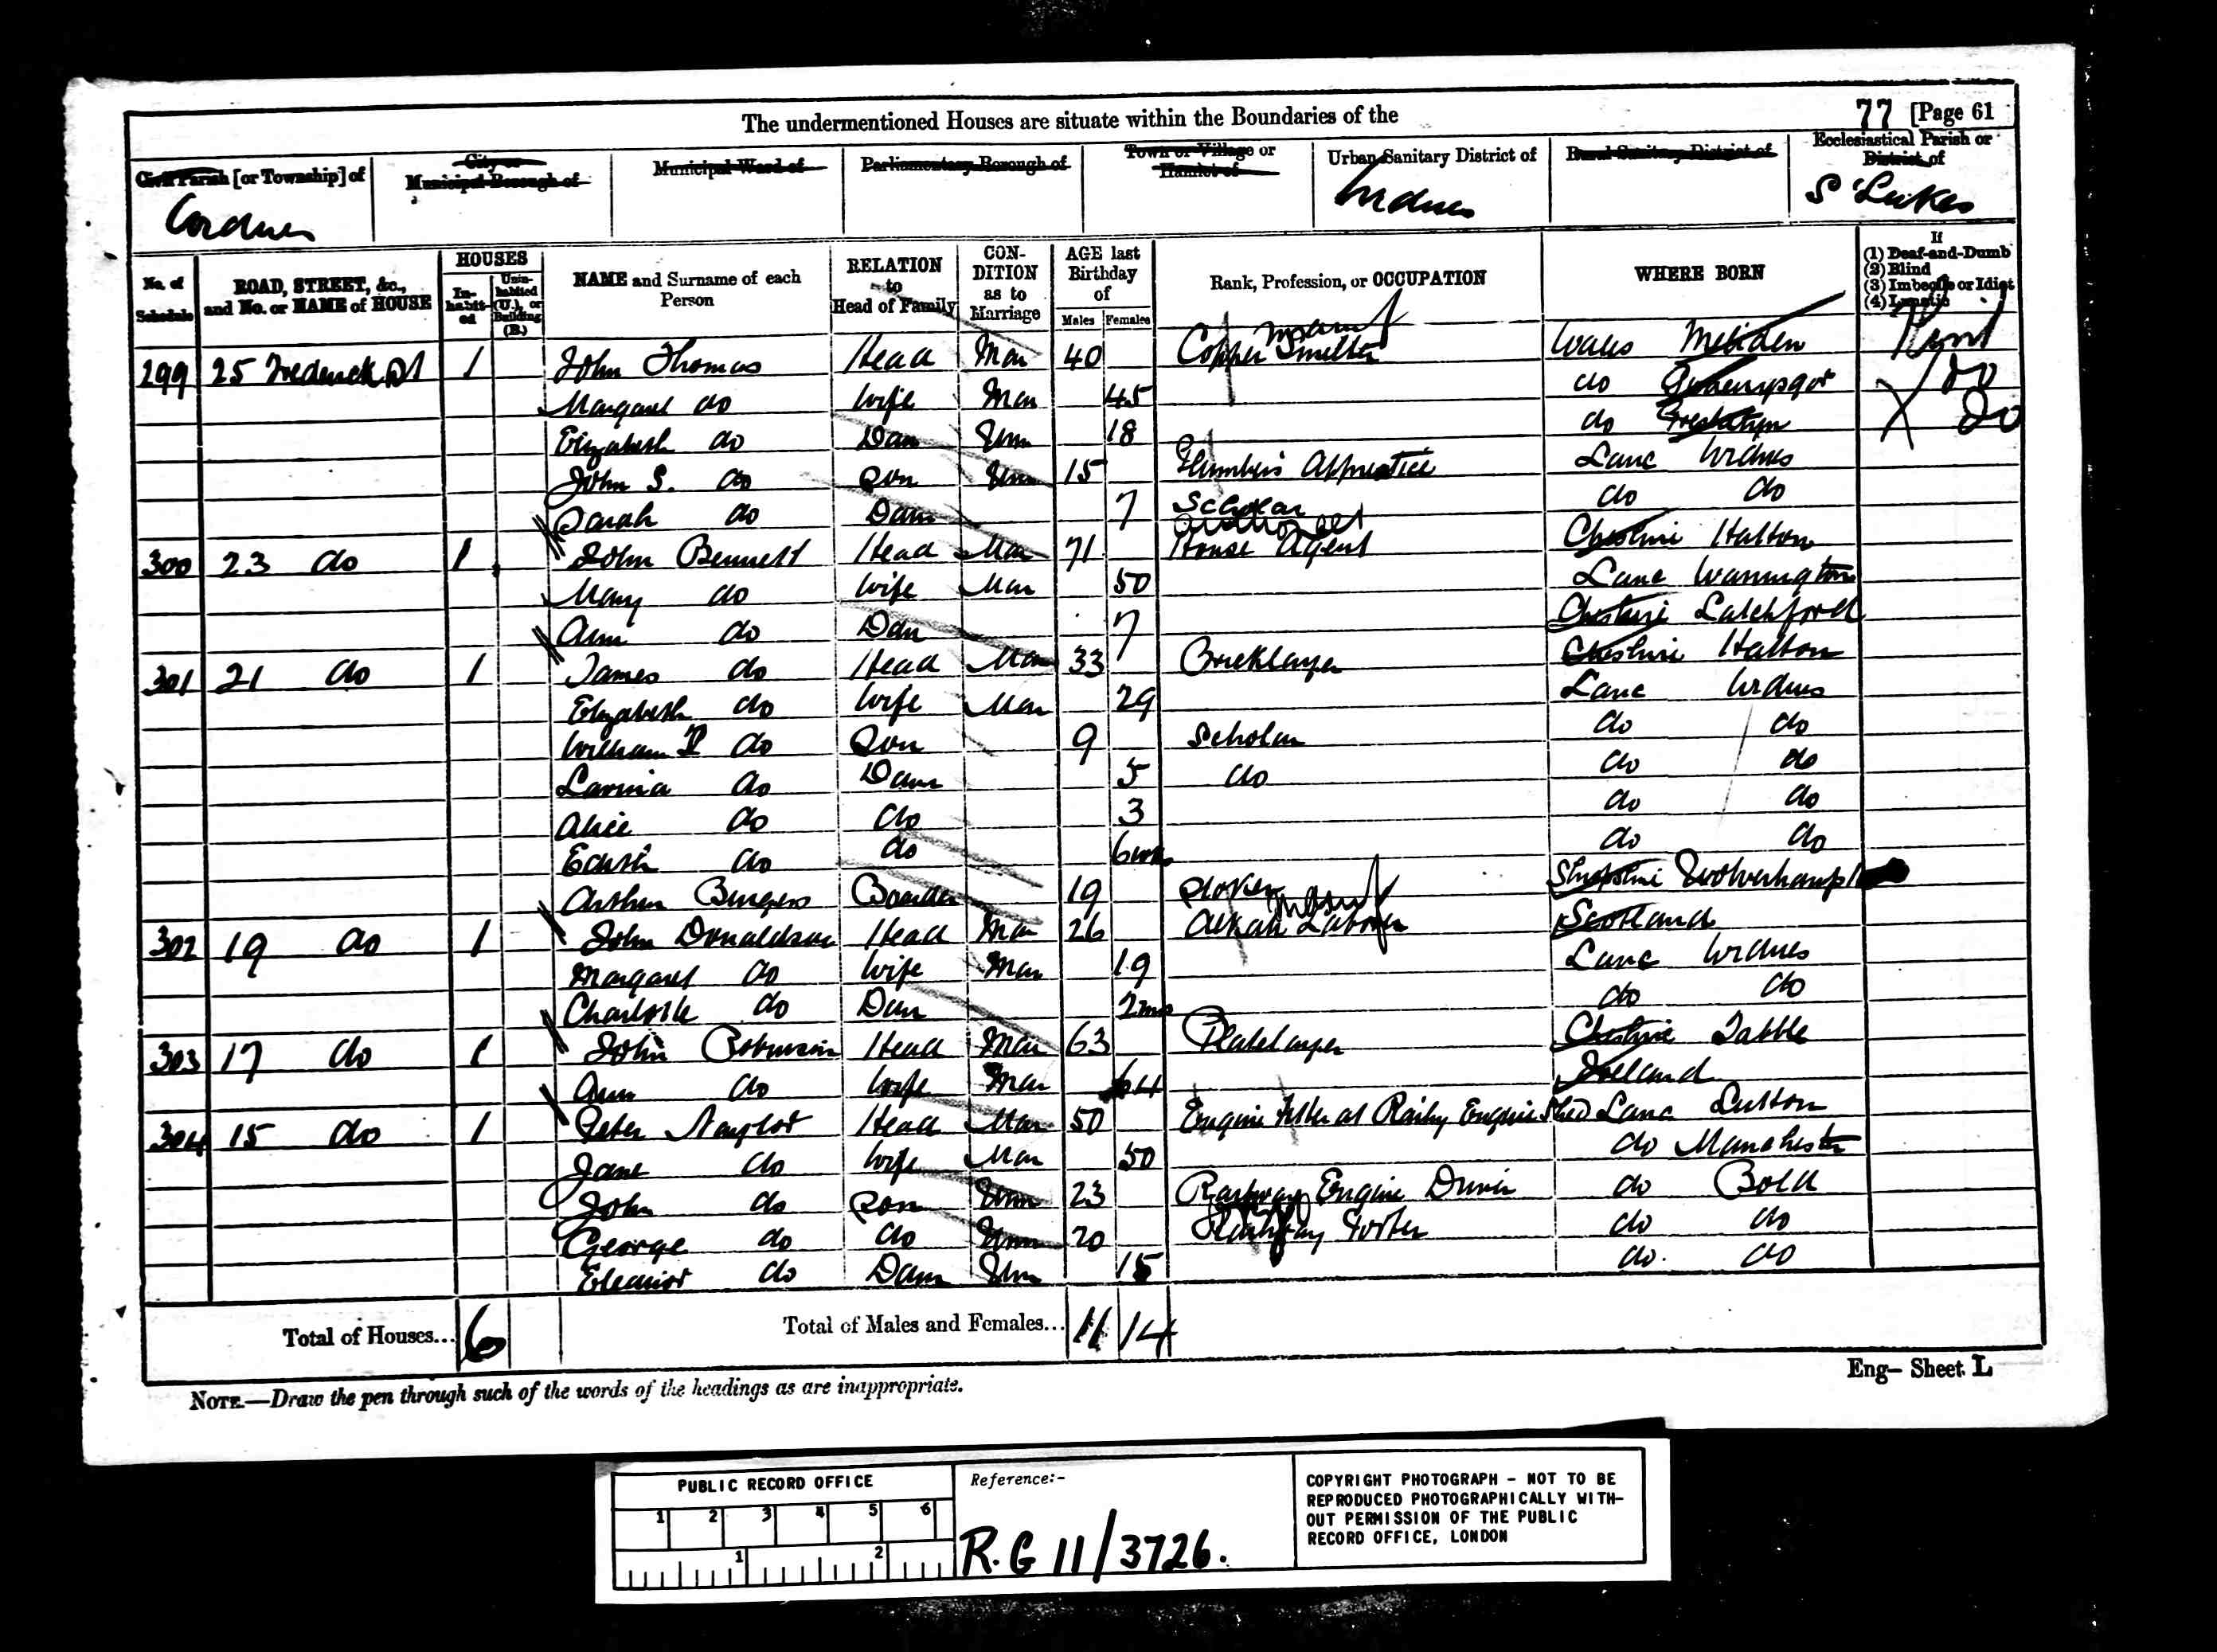 The undermentioned Houses are situate within the Boundaries of the
77 [Page 61
Civil Parish [or Township] of
City or Municipal Borough of
Municipal Ward of
Parliamentary Borough of
Town or Village or Hamlet of
Urban Sanitary District of
Rural Sanitary District of
Ecclesiastical Parish or District of
Widnes
Widnes
St Lukes
No. of Schedule
ROAD, STREET, &c., and No. or NAME of HOUSE
HOUSES
In-habit-ed
Unin-habited (U.), or Building (B.)
NAME and Surname of each Person
RELATION to Head of Family
CON-DITION as to Marriage
AGE last Birthday of
Males Females
Rank, Profession, or OCCUPATION
WHERE BORN
If
(1) Deaf-and-Dumb
(2) Blind
(3) Imbecile or Idiot
(4) Lunatic
299 25 Frederick St 1 John Thomas Head Mar 40 Copper Smelter Manuf Wales
Margaret do Wife Mar 45 do do
Elizabeth do Daur Unm 18 do Prestatyn do
John S. do Son Unm 15 Plumbers Apprentice Lanc Widnes
Sarah do Daur 7 Scholar do do
300 23 do 1 John Bennett Head Mar 71 House Agent Cheshire Halton
Mary do Wife Mar 50 Lanc Warrington
Ann do Daur 7 Cheshire Latchford
301 21 do 1 James do Head Mar 33 Bricklayer Cheshire Halton
Elizabeth do Wife Mar 29 Lanc Widnes
William do Son 9 Scholar do do
Lavinia do Daur 5 do do do
Alice do do 3 do do
Edith do do 6 wks do do
Arthur Burgess Boarder 19 Shropshire
302 19 do 1 John Donaldson Head Mar 26 Alkali Laborer Manuf Scotland
Margaret do Wife Mar 19 Lanc Widnes
Charlotte do Daur 2 mos do do
303 17 do 1 John Robinson Head Mar 63 Platelayer Cheshire Tabble
Ann do Wife Mar 64 Ireland
304 15 do 1 Peter Naylor Head Mar 50 Engine Fitter at Railwy Engine Shed Lanc Sutton
Jane do Wife Mar 50 do Manchester
John do Son Unm 23 Railway Engine Driver do Bold
George do do Unm 20 Railway Porter do do
Eleanor do Daur Unm 15 do do
Total of Houses... 6
Total of Males and Females... 11 14
Eng— Sheet L
NOTE.—Draw the pen through such of the words of the headings as are inappropriate.
PUBLIC RECORD OFFICE
1 2 3 4 5 6
1 2
Reference:-
R.G 11/3726.
COPYRIGHT PHOTOGRAPH - NOT TO BE
REPRODUCED PHOTOGRAPHICALLY WITH-
OUT PERMISSION OF THE PUBLIC
RECORD OFFICE, LONDON